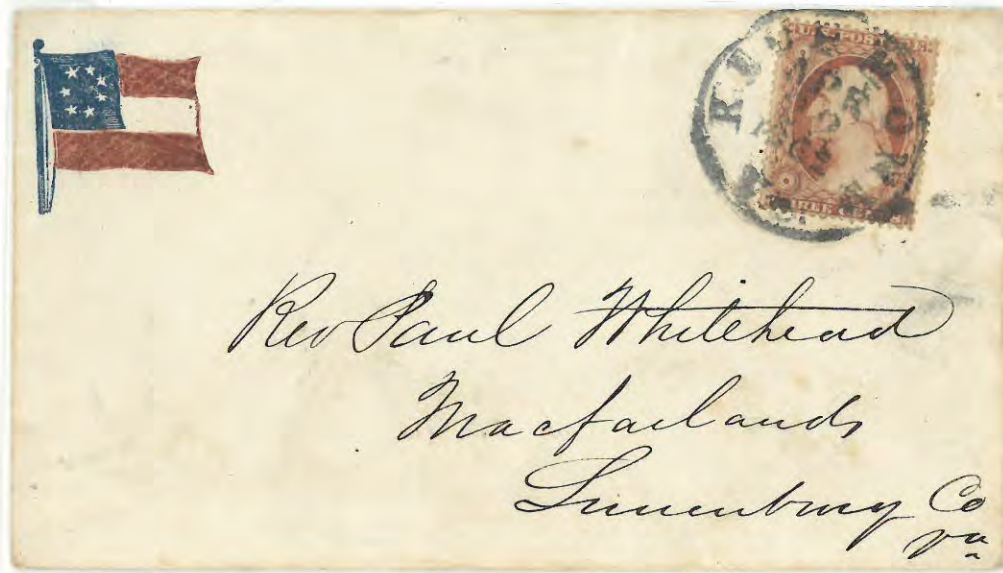 Rev Paul Whitehead
Macfarlands
Lunenburg Co
Va